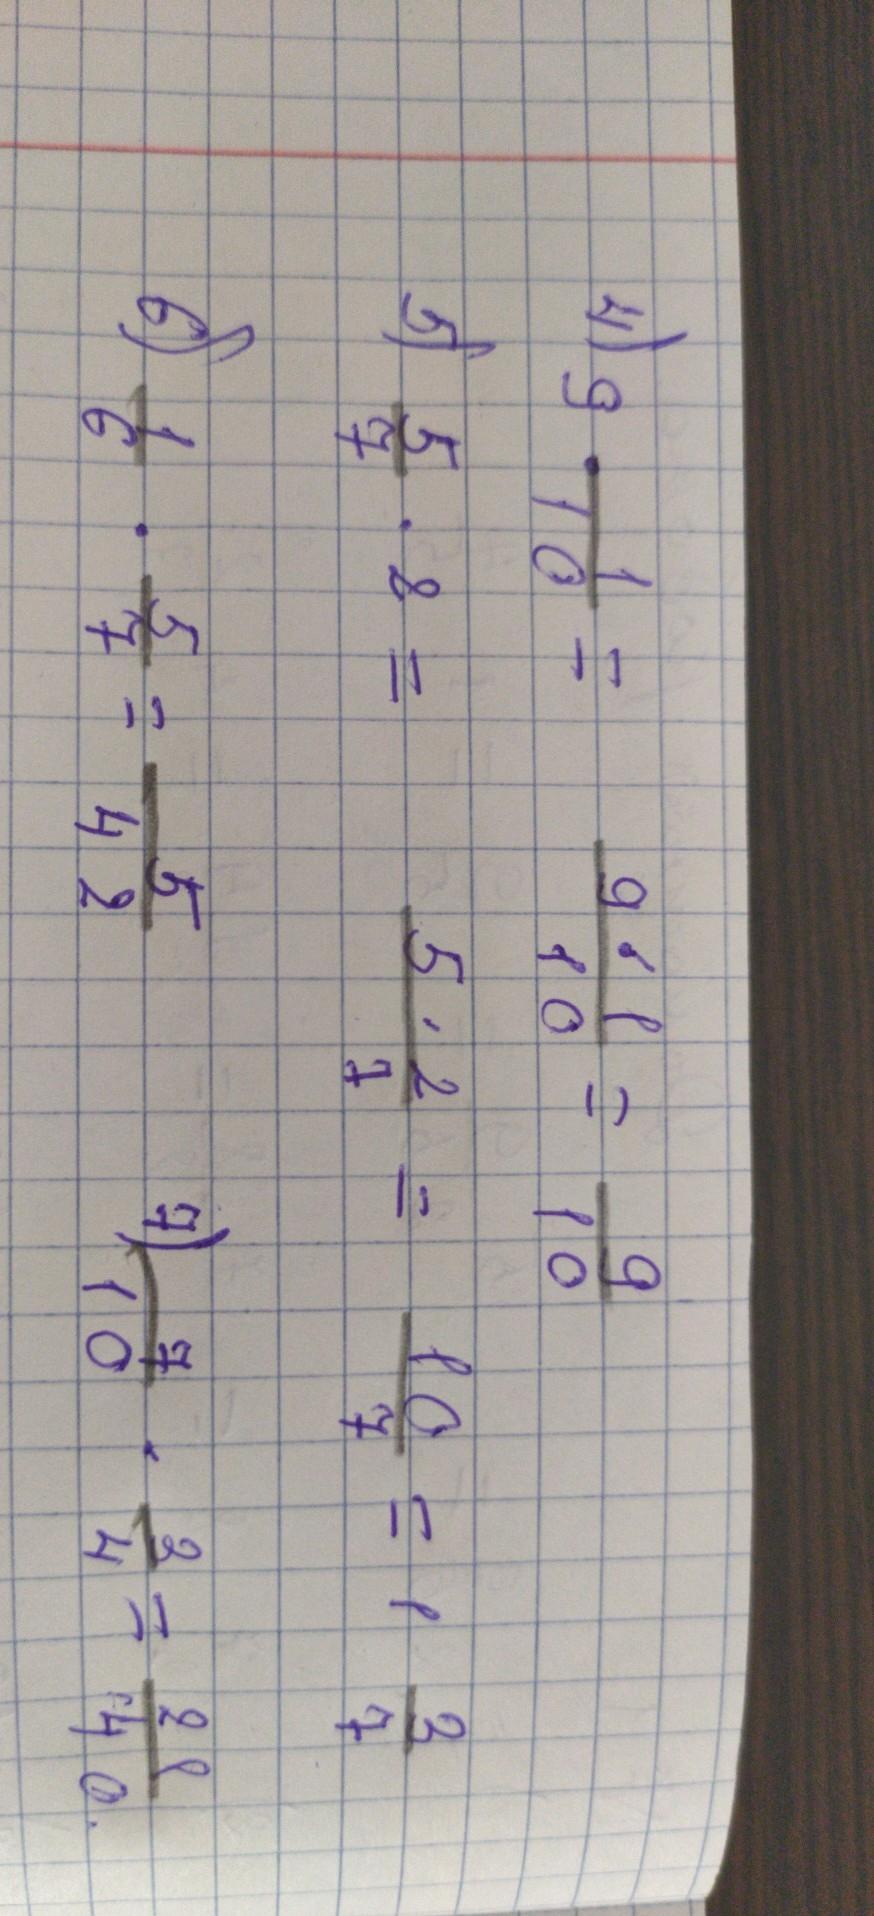 4) 9 · 1/10 = 9·1/10 = 9/10
5) 5/7 · 2 = 5·2/7 = 10/7 = 1 3/7
6) 1/6 · 5/7 = 5/42 7) 7/10 · 3/4 = 21/40.